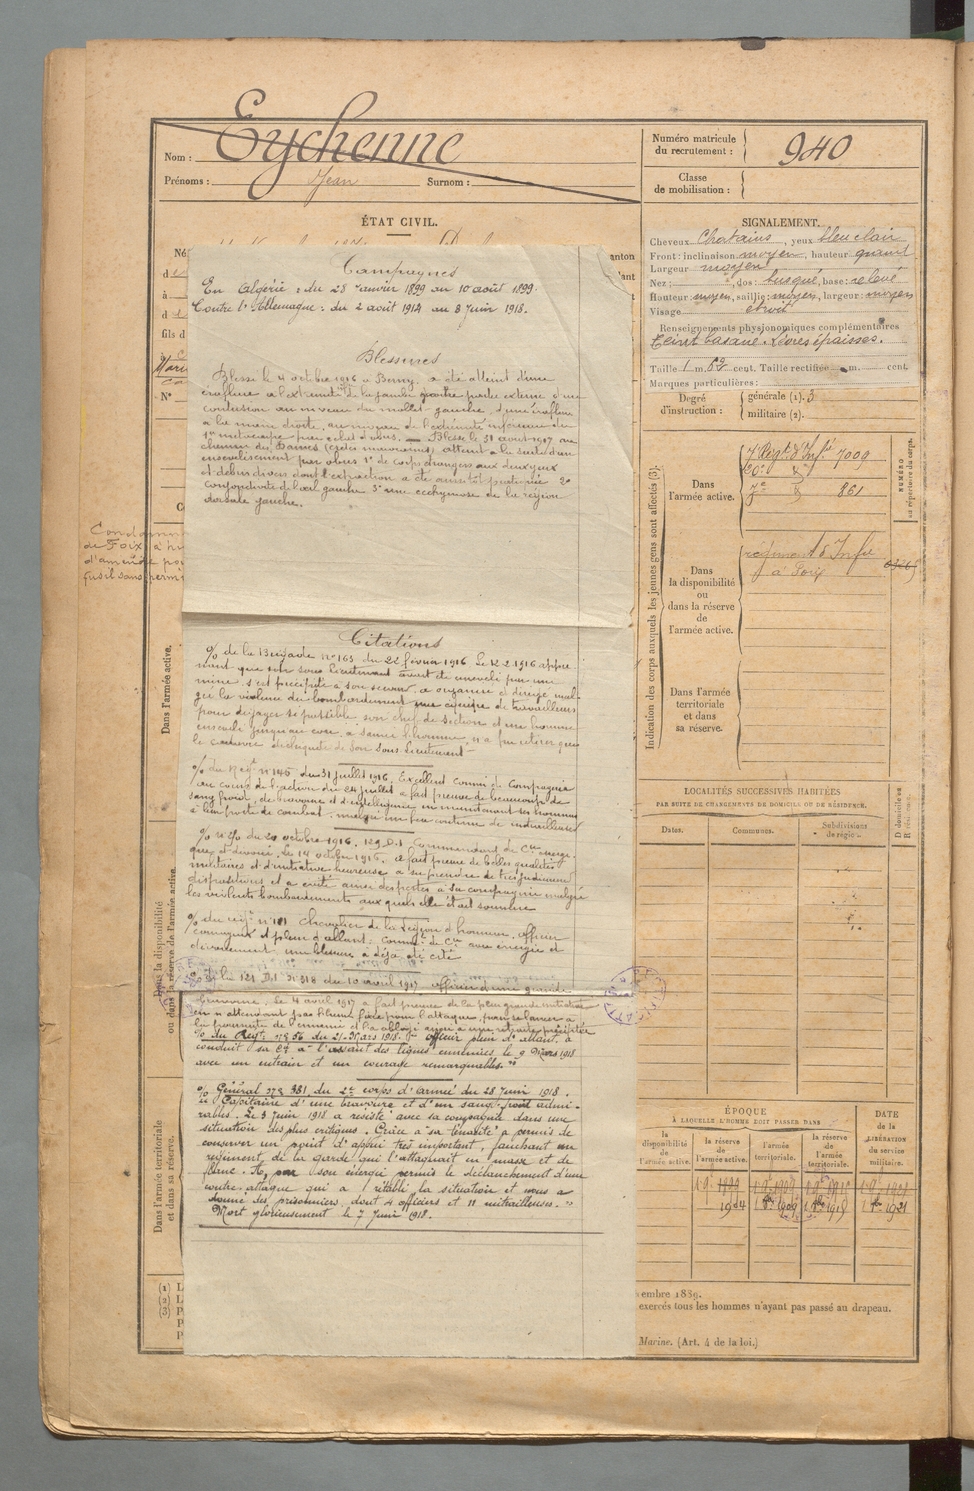 Nom : Eychenne
Prénoms : Jean Surnom :
Numéro matricule
du recrutement : 940
Classe
de mobilisation :
ÉTAT CIVIL.
SIGNALEMENT.
Cheveux Chatains, yeux bleu clair
Front : inclinaison moyen, hauteur grand
Largeur moyen
Nez : dos : busqué, base : relevé
Hauteur : moyen, saillie : moyen, largeur : moyen
Visage étroit
Renseignements physionomiques complémentaires
Teint basané. Lèvres épaisses.
Taille 1 m. 62 cent. Taille rectifiée m. cent.
Marques particulières :
Degré
d'instruction :
générale (1). 3
militaire (2).
Campagnes
En Algérie : du 28 Janvier 1899 au 10 août 1899.
Contre l'Allemagne : du 2 août 1914 au 8 Juin 1918.
Blessures
Blessé le 4 octobre 1916 à Berny, a été atteint d'une
éraflure à l'extrémité de la jambe gauche partie externe d'une
contusion au niveau du mollet gauche, d'une éraflure
à la main droite, au niveau de l'extrémité inférieure du
1er métacarpe par éclat d'obus. — Blessé le 31 août 1917 au
chemin des Dames atteint à la suite d'un
ensevelissement par obus 1° de corps étrangers aux deux yeux
et débris divers dont l'extraction a été aussitôt pratiquée 2°
conjonctivite de l'œil gauche 3° une ecchymose de la région
dorsale gauche.
Citations
% de la Brigade n° 163 du 22 février 1916 Le 12.2.1916 appre-
nant que son sous lieutenant avait été enseveli par une
mine, s'est précipité à son secours, a organisé et dirigé mal-
gré la violence du bombardement une équipe de travailleurs
pour dégager si possible son chef de section et un homme
enseveli jusqu'au cou, a sauvé l'homme, n'a pu retirer que
le cadavre de son sous-lieutenant
% du Régt n° 145 du 31 juillet 1916. Excellent Commt de Compagnie
au cours de l'action du 24 juillet a fait preuve de beaucoup de
sang froid, de bravoure et d'intelligence en maintenant ses hommes
à leur poste de combat, malgré un feu continu de mitrailleuses
% n° du 20 octobre 1916. 129 D.I Commandant de Cie énergi-
que et dévoué. Le 14 octobre 1916, a fait preuve de belles qualités
militaires et d'initiative heureuse, a su prendre de très judicieuses
dispositions et a évité ainsi des pertes à sa compagnie malgré
les violents bombardements auxquels elle était soumise
% du régt n° 181 Chevalier de la Légion d'honneur, officier
courageux et plein d'allant; commt de Cie avec énergie et
dévouement; une blessure a déjà été cité
% de la 121 D.I. n° 318 du 10 avril 1917 officier d'une grande
bravoure, le 4 avril 1917 a fait preuve de la plus grande initiative
en n'attendant pas l'heure fixée pour l'attaque, pour se lancer à
la poursuite de l'ennemi et l'a obligé ainsi à une retraite précipitée
% du Régt n° 56 du 21 Mars 1918. officier plein d'allant, a
conduit sa Cie à l'assaut des lignes ennemies le 9 Mars 1918
avec un entrain et un courage remarquables."
% Général n° 381 du 2e corps d'armée du 28 Juin 1918.
" Capitaine d'une bravoure et d'un sang froid admi-
rables. Le 3 Juin 1918 a résisté avec sa compagnie dans une
situation des plus critiques. Grâce à sa ténacité a permis de
conserver un point d'appui très important, fauchant un
régiment de la garde qui l'attaquait en masse et de
flanc. A, par son énergie permis le déclanchement d'une
contre-attaque qui a rétabli la situation et nous a
donné des prisonniers dont 4 officiers et 11 mitrailleuses."
Mort glorieusement le 7 Juin 1918.
Indication des corps auxquels les jeunes gens sont affectés (3).
Dans
l'armée active.
7e Régt d'Infie 7009
861
NUMÉRO
au répertoire du corps.
Dans
la disponibilité
ou
dans la réserve
de
l'armée active.
régiment d'Infie
à Foix
Dans l'armée
territoriale
et dans
sa réserve.
LOCALITÉS SUCCESSIVES HABITÉES
PAR SUITE DE CHANGEMENTS DE DOMICILE OU DE RÉSIDENCE.
Dates.
Communes.
Subdivisions
de région.
ÉPOQUE
À LAQUELLE L'HOMME DOIT PASSER DANS
la
disponibilité
de
l'armée active.
la réserve
de
l'armée active.
l'armée
territoriale.
la réserve
de
l'armée
territoriale.
DATE
de la
LIBÉRATION
du service
militaire.
1904
1909
1915
1921
Dans l'armée active.
Dans la disponibilité
ou dans la réserve de l'armée active.
Dans l'armée territoriale
et dans sa réserve.
embre 1889.
exercés tous les hommes n'ayant pas passé au drapeau.
Marine. (Art. 4 de la loi.)